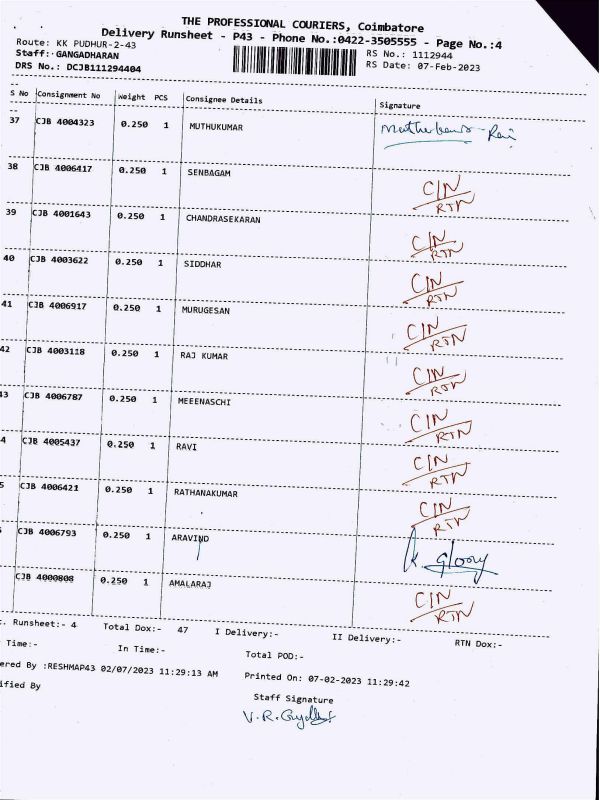 THE PROFESSIONAL COURIERS, Coimbatore
Delivery Runsheet - P43 - Phone No.:0422-3505555 - Page No.:4
Route: KK PUDHUR-2-43 RS No.: 1112944
Staff: GANGADHARAN RS Date: 07-Feb-2023
DRS No.: DCJB111294404
S No Consignment No Weight PCS Consignee Details Signature
37 CJB 4004323 0.250 1 MUTHUKUMAR
38 CJB 4006417 0.250 1 SENBAGAM C/N RTN
39 CJB 4001643 0.250 1 CHANDRASEKARAN C/N RTN
40 CJB 4003622 0.250 1 SIDDHAR C/N RTN
41 CJB 4006917 0.250 1 MURUGESAN C/N RTN
42 CJB 4003118 0.250 1 RAJ KUMAR C/N RTN
3 CJB 4006787 0.250 1 MEEENASCHI C/N RTN
4 CJB 4005437 0.250 1 RAVI C/N RTN
5 CJB 4006421 0.250 1 RATHANAKUMAR C/N RTN
CJB 4006793 0.250 1 ARAVIND K. gloory
CJB 4000808 0.250 1 AMALARAJ C/N RTN
. Runsheet:- 4 Total Dox:- 47 I Delivery:- II Delivery:- RTN Dox:-
Time:- In Time:- Total POD:-
ered By :RESHMAP43 02/07/2023 11:29:13 AM Printed On: 07-02-2023 11:29:42
ified By
Staff Signature